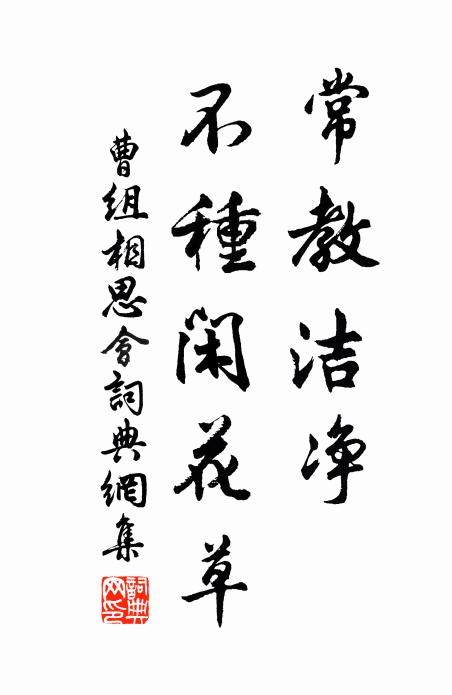 常教洁净
不種闲花草
曹组相思会詞典網集
詞典网印